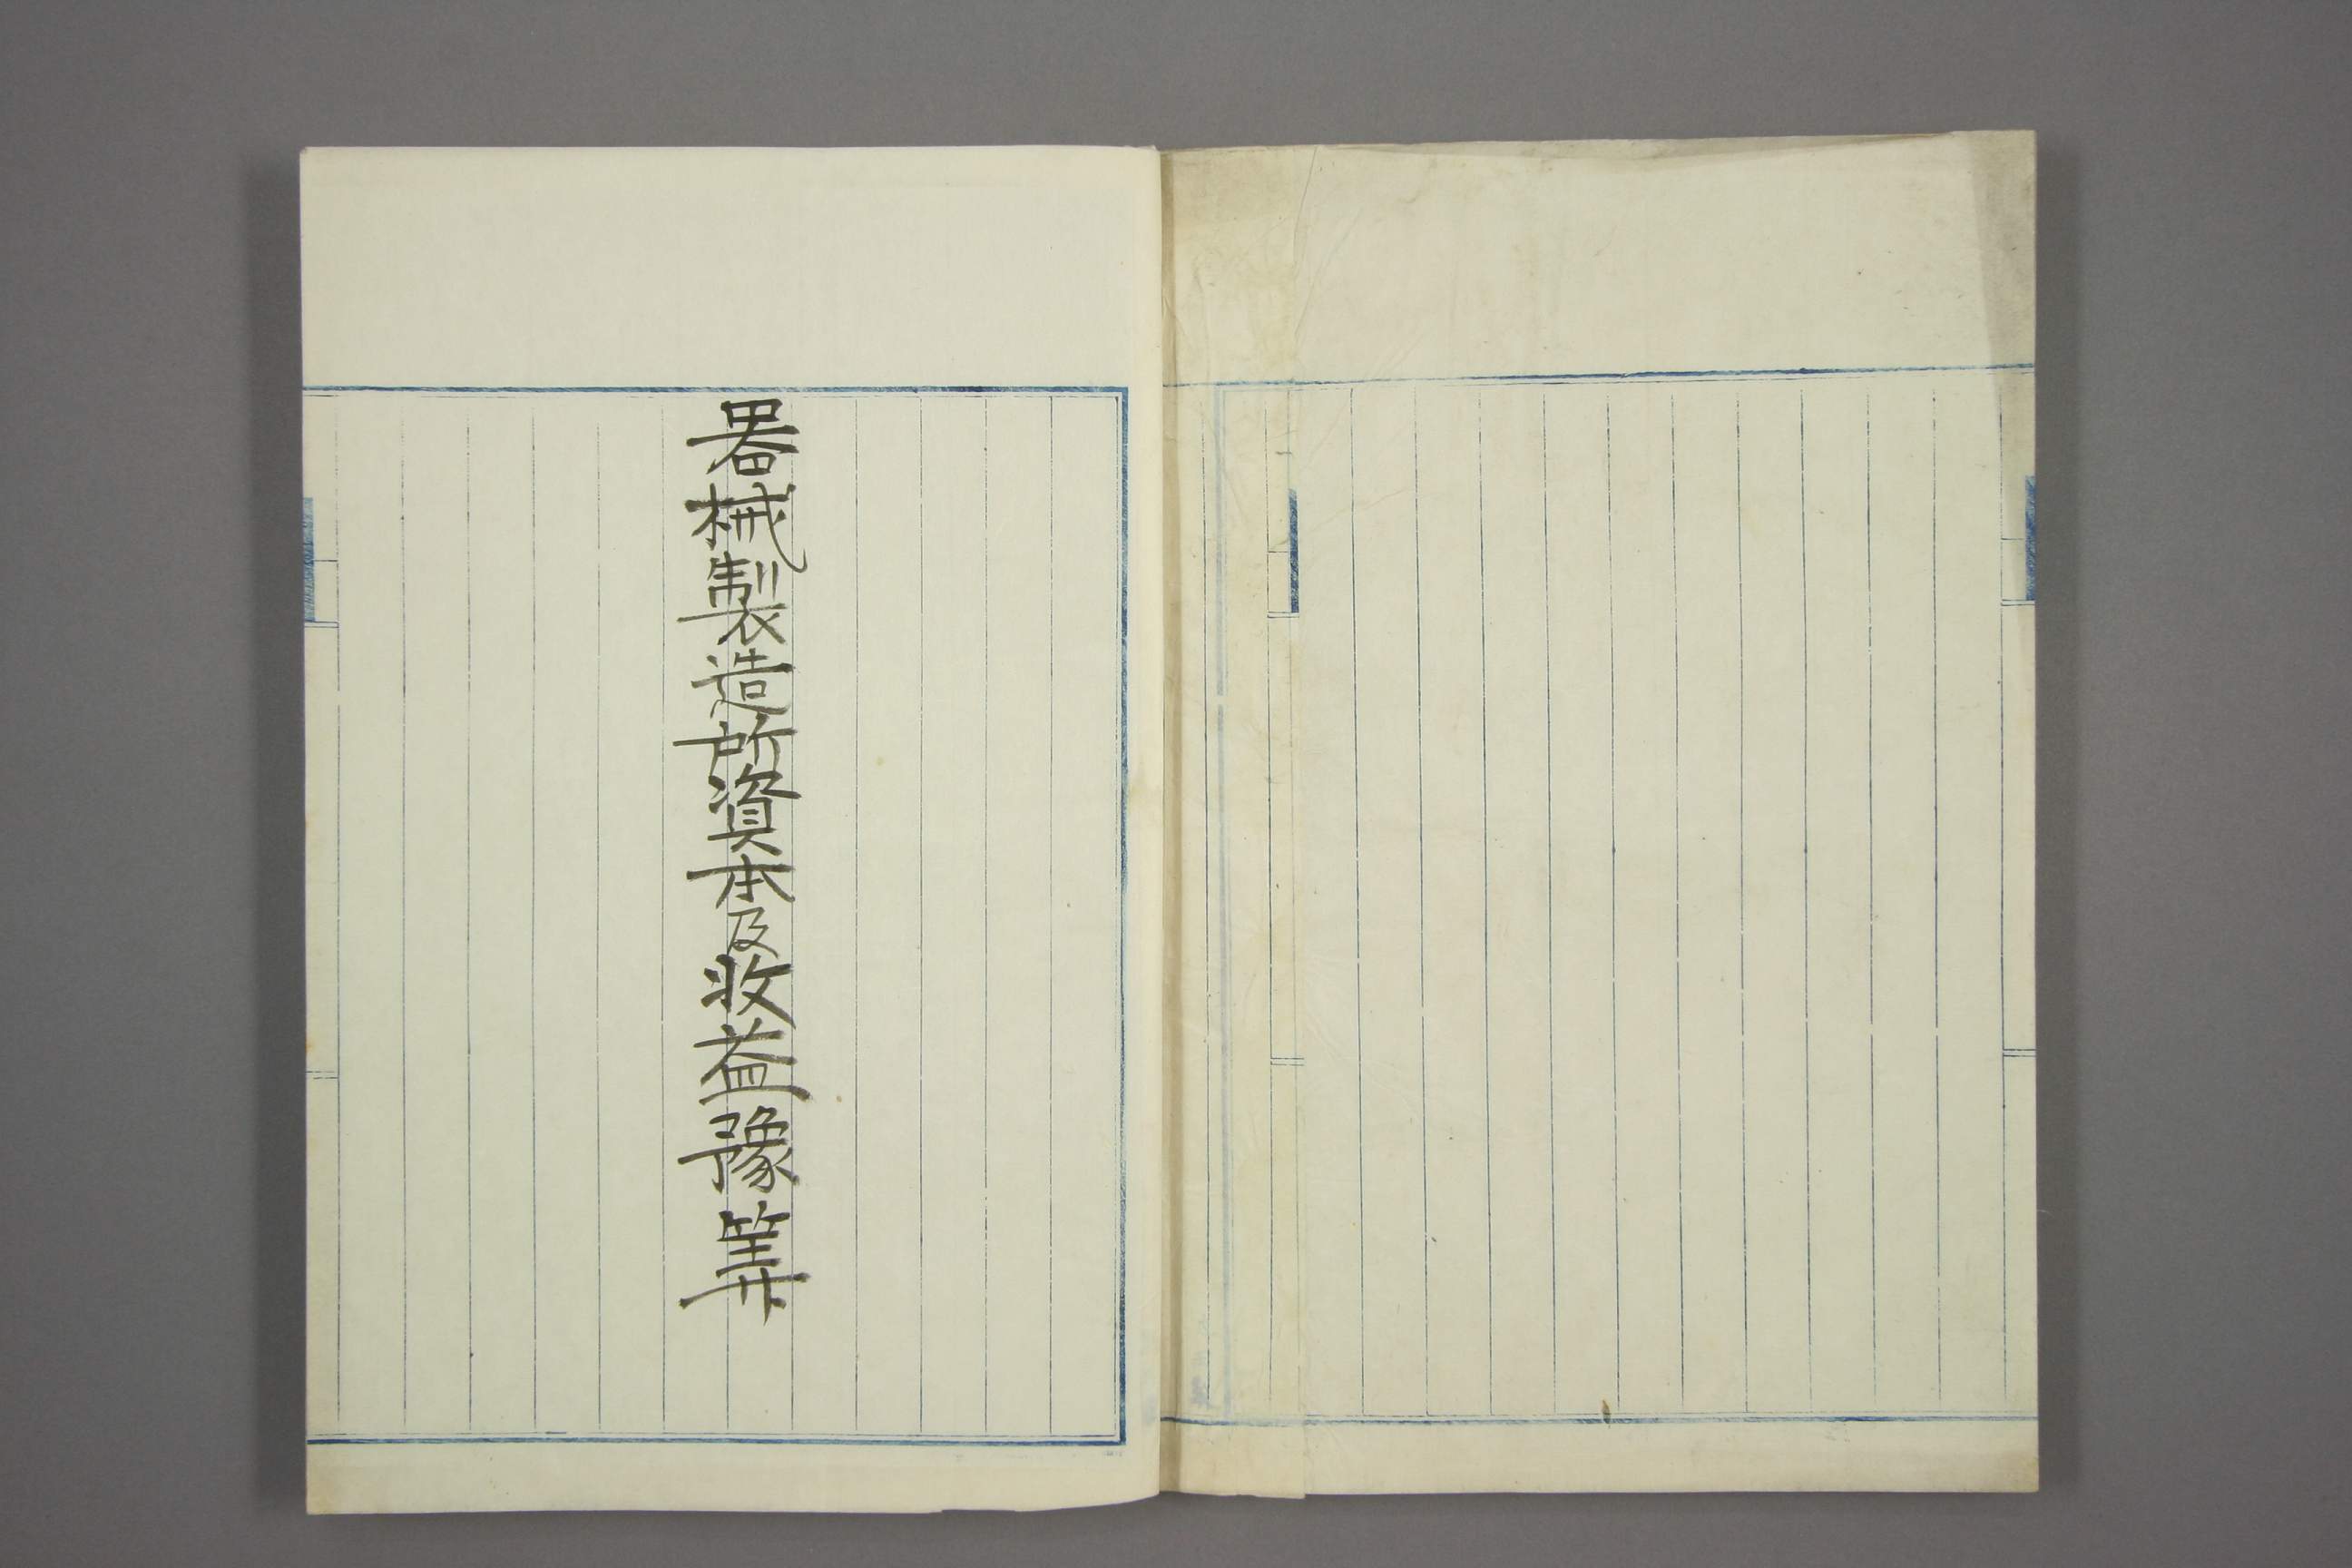 器械製造所資本及收益豫筭